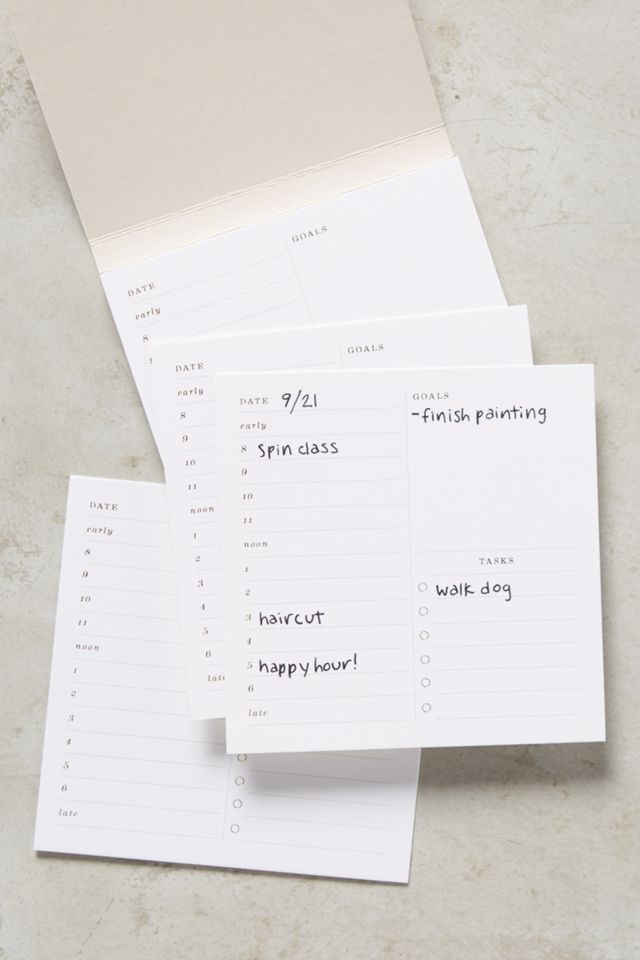 GOALS
DATE
early
8
DATE
GOALS
early
8
9
10
11
noon
1
2
3
4
5
6
late
DATE 9/21
early
8 Spin class
9
10
11
noon
1
2
3 haircut
4
5 happy hour!
6
late
GOALS
-finish painting
TASKS
walk dog
DATE
early
8
9
10
11
noon
1
2
3
4
5
6
late